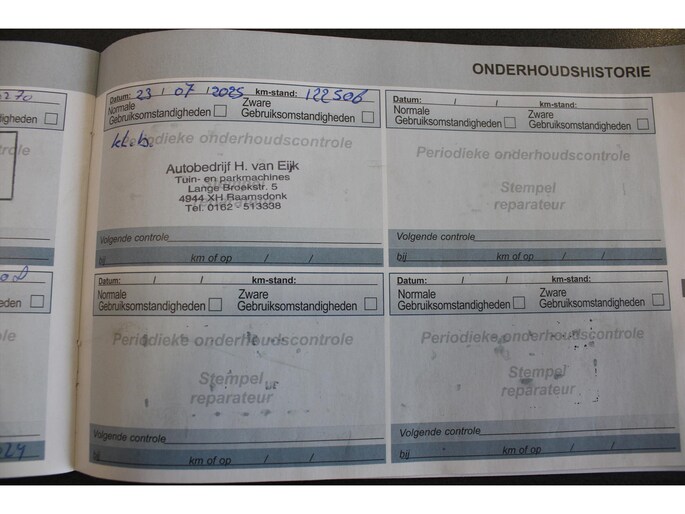 ONDERHOUDSHISTORIE
270
Datum: 23 / 07 / 2025 km-stand: 122506
Normale Gebruiksomstandigheden Zware Gebruiksomstandigheden
Periodieke onderhoudscontrole
Autobedrijf H. van Eijk
Tuin- en parkmachines
Lange Broekstr. 5
4944 XH Raamsdonk
Tel. 0162 - 513338
Volgende controle
bij km of op / /
Datum: / / km-stand:
Normale Gebruiksomstandigheden Zware Gebruiksomstandigheden
Periodieke onderhoudscontrole
Stempel
reparateur
Volgende controle
bij km of op / /
Datum: / / km-stand:
Normale Gebruiksomstandigheden Zware Gebruiksomstandigheden
Periodieke onderhoudscontrole
Stempel
reparateur
Volgende controle
bij km of op / /
Datum: / / km-stand:
Normale Gebruiksomstandigheden Zware Gebruiksomstandigheden
Periodieke onderhoudscontrole
Stempel
reparateur
Volgende controle
bij km of op / /